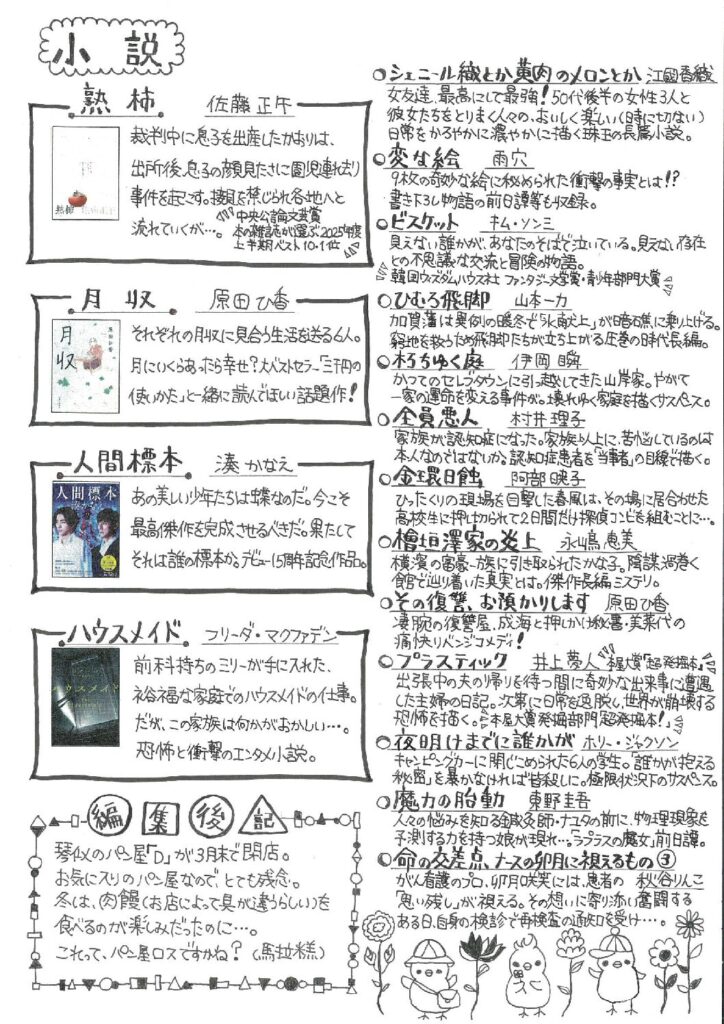 小説
熟柿 佐藤正午
裁判中に息子を出産したかおりは、
出所後、息子の顔見たさに園児連れ去り
事件を起こす。接見を禁じられ各地へと
流れていくが…。
中央公論文芸賞
本の雑誌が選ぶ2025年度
上半期ベスト10・1位
熟柿
月収 原田ひ香
月収
原田ひ香
それぞれの月収に見合う生活を送る6人。
月にいくらあったら幸せ?大ベストセラー「三千円の
使いかた」と一緒に読んでほしい話題作!
人間標本 湊かなえ
人間標本
あの美しい少年たちは蝶なのだ。今こそ
最高傑作を完成させるべきだ。果たして
それは誰の標本か。デビュー15周年記念作品。
ハウスメイド フリーダ・マクファデン
ハウスメイド
前科持ちのミリーが手に入れた、
裕福な家庭でのハウスメイドの仕事。
だが、この家族は何かがおかしい…。
恐怖と衝撃のエンタメ小説。
編集後記
琴似のパン屋「D」が3月末で閉店。
お気に入りのパン屋なので、とても残念。
冬は、肉饅(お店によって具が違うらしい)を
食べるのが楽しみだったのに…。
これって、パン屋ロスですかね?(馬拉糕)
シェニール織とか黄肉のメロンとか 江國香織
女友達、最高にして最強!50代後半の女性3人と
彼女たちをとりまく人々の、おいしく楽しい(時に切ない)
日常をかろやかに濃やかに描く珠玉の長篇小説。
変な絵 雨穴
9枚の奇妙な絵に秘められた衝撃の事実とは!?
書き下ろし物語の前日譚等も収録。
ビスケット キム・ソンミ
見えない誰かが、あなたのそばで泣いている。見えない存在
との不思議な交流と冒険の物語。
韓国ウィズダムハウス社 ファンタジー文学賞・青少年部門大賞
ひむろ飛脚 山本一力
加賀藩は異例の暖冬で「氷献上」が暗礁に乗り上げる。
窮地を救うため飛脚たちが立ち上がる圧巻の時代長編。
朽ちゆく庭 伊岡瞬
かつてのセレブタウンに引っ越してきた山岸家。やがて
一家の運命を変える事件が。壊れゆく家庭を描くサスペンス。
全員悪人 村井理子
家族が認知症になった。家族以上に、苦悩しているのは
本人なのではないか。認知症患者を「当事者」の目線で描く。
金環日蝕 阿部暁子
ひったくりの現場を目撃した春風は、その場に居合わせた
高校生に押し切られて2日間だけ探偵コンビを組むことに…。
檜垣澤家の炎上 永嶋恵美
横濱の富豪一族に引き取られたかな子。陰謀渦巻く
館で辿り着いた真実とは。傑作長編ミステリ。
その復讐、お預かりします 原田ひ香
凄腕の復讐屋、成海と押しかけ秘書・美菜代の
痛快リベンジコメディ!
プラスティック 井上夢人 本屋大賞「超発掘本」
出張中の夫の帰りを待つ間に奇妙な出来事に遭遇
した主婦の日記。次第に日常を逸脱し、世界が崩壊する
恐怖を描く。本屋大賞発掘部門「超発掘本」!
夜明けまでに誰かが ホリー・ジャクソン
キャンピングカーに閉じこめられた6人の学生。「誰かが抱える
秘密」を暴かなければ皆殺しに。極限状況下のサスペンス。
魔力の胎動 東野圭吾
人々の悩みを知る鍼灸師・ナユタの前に、物理現象を
予測する力を持つ娘が現れ…。「ラプラスの魔女」前日譚。
命の交差点 ナースの卯月に視えるもの③
がん看護のプロ、卯月咲笑には、患者の 秋谷りんこ
「思い残し」が視える。その想いに寄り添い奮闘する
ある日、自身の検診で再検査の通知を受け…。